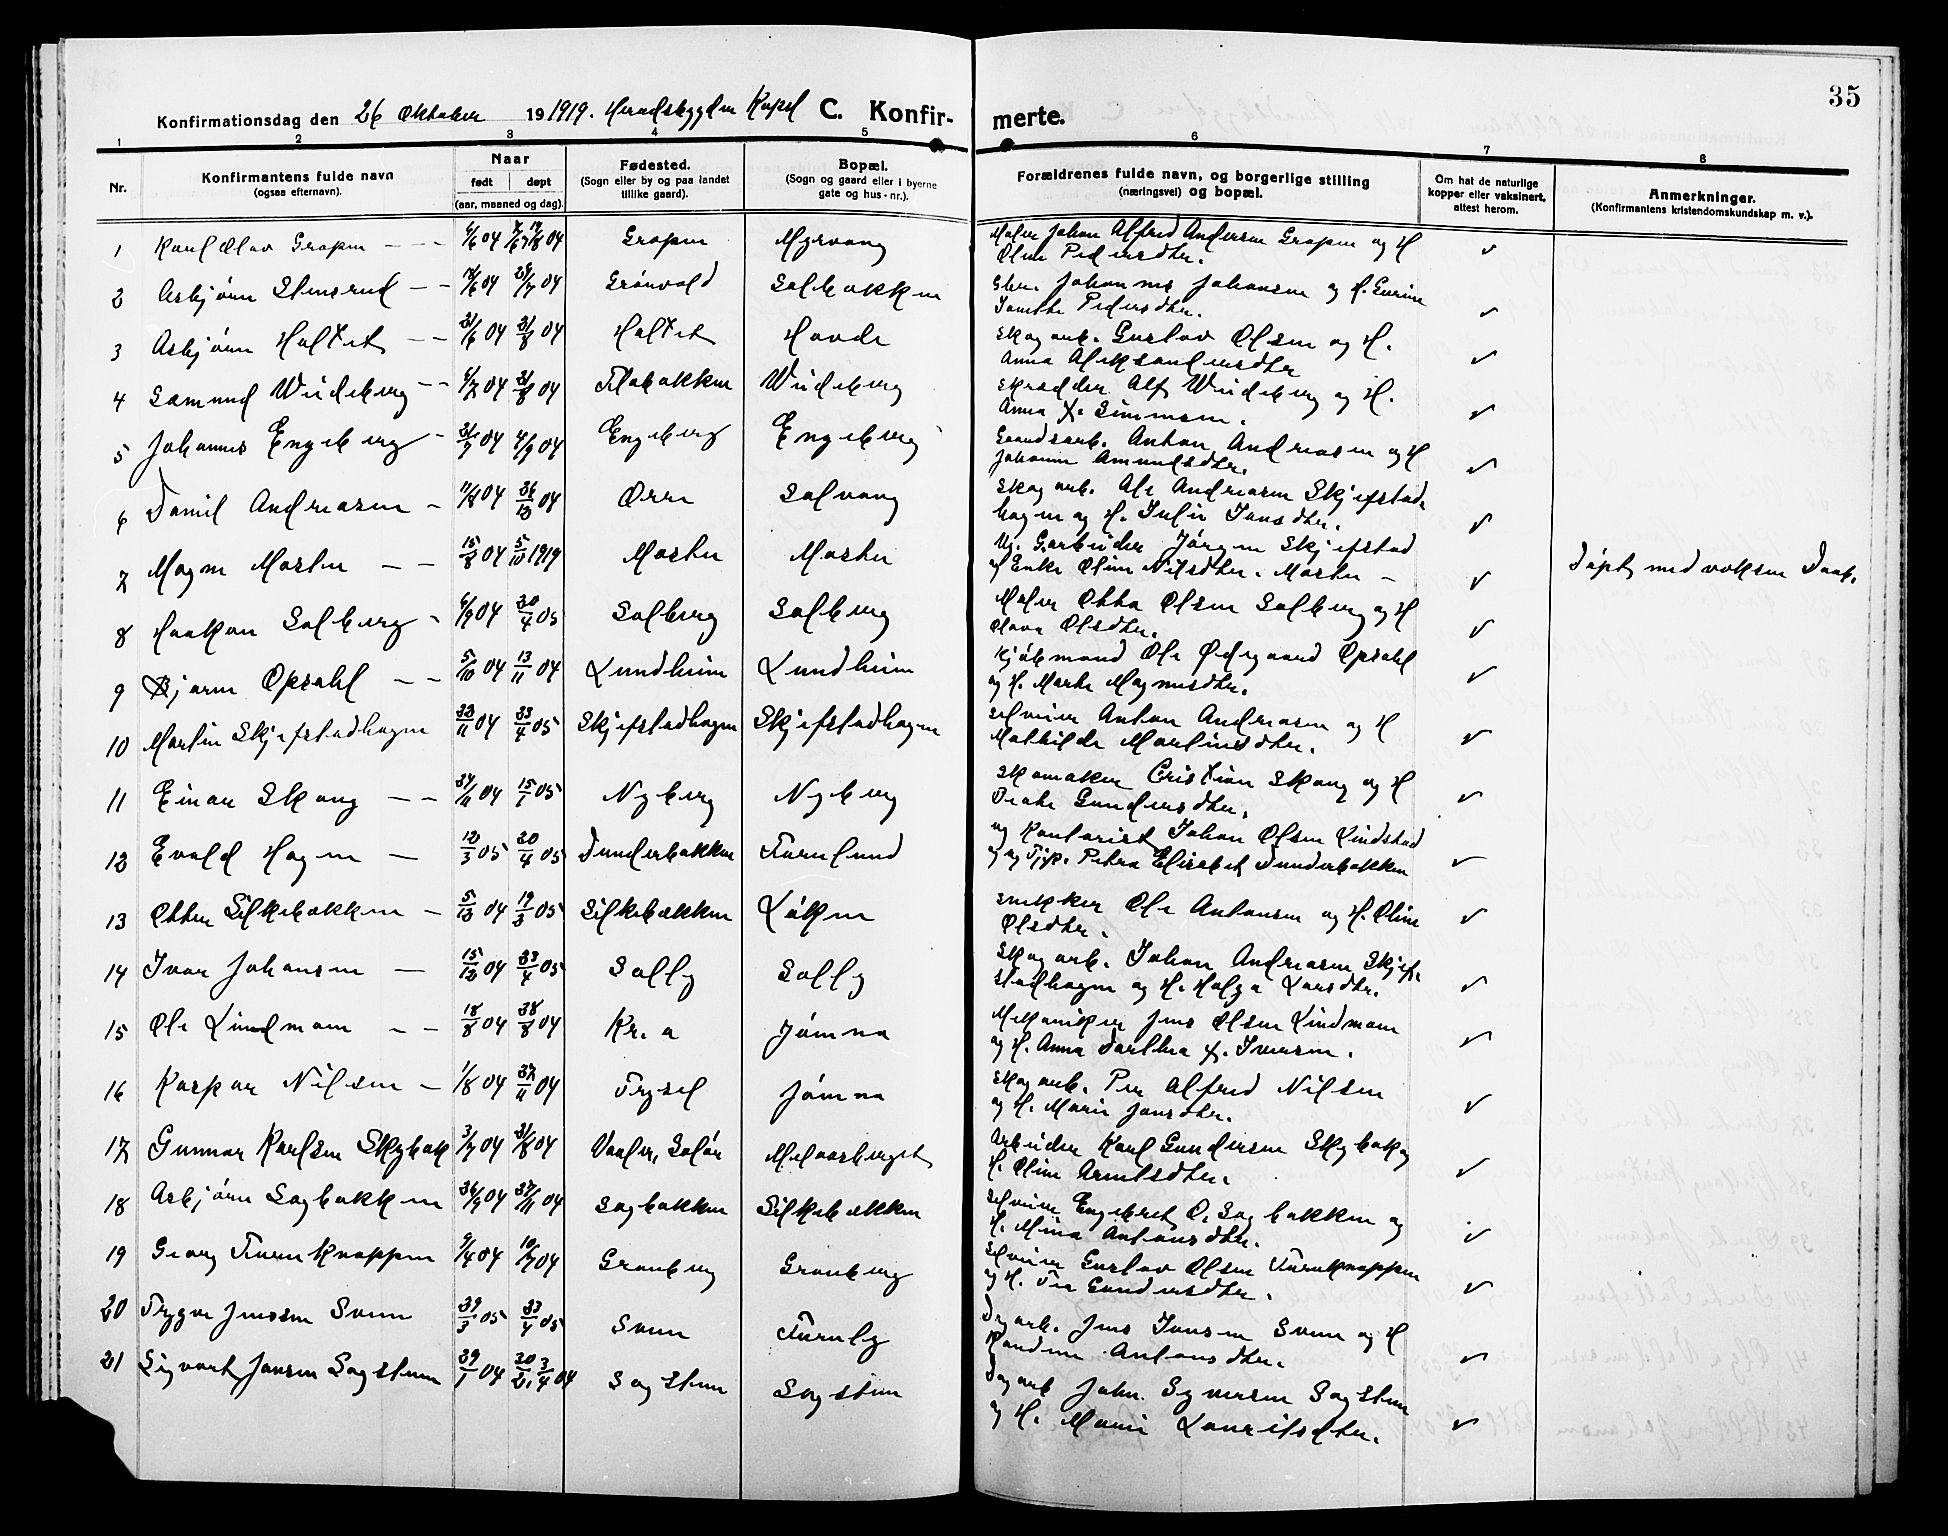 35
Konfirmationsdag den 26 Oktober 19 1919. Heradsbygden Kapel C. Konfirmerte.
1 2 3 4 5 6 7 8
Nr. Konfirmantens fulde navn (ogsaa efternavn). Naar født døpt (aar, maaned og dag). Fødested. (Sogn eller by og paa landet tillike gaard). Bopæl. (Sogn og gaard eller i byerne gate og hus-nr.). Forældrenes fulde navn, og borgerlige stilling (næringsvei) og bopæl. Om hat de naturlige kopper eller vaksinert, attest herom. Anmerkninger. (Konfirmantens kristendomskundskap m. v.).
1 Karl Olav Grapen - - - 04 04 Grapen Myrvang Maler Johan Alfred Andersen Grapen og H
Oline Pedersdtr. ✓
2 Asbjørn Stensrud - - 04 04 Grønvold Solbakken Johannes Johansen og H. Gurine
Pedersdtr. ✓
3 Asbjørn Holtet - - 21/6 04 21/8 04 Holtet Hovde Skogarb. Gustav Olsen og H.
Anna Aleksandersdtr ✓
4 Wiideberg - - 04 21/8 04 Flobakken Wiideberg Skrædder Alf Wiideberg og H.
Anna K. Simensen. ✓
5 Johannes Engeberg - 31/7 04 4/9 04 Engeberg Engeberg Anton Andreasen og H
Johanne Amundsdtr. ✓
6 Daniel Andreasen - 11/8 04 04 Ørre Solvang Skogarb. Ole Andreasen Skjefstad-
hagen og H. Julie Jonsdtr. ✓
7 Magne Moster - - 15/8 04 5/10 1919 Moster Moster Ug. Garbeider Jørgen Skjefstad
af Enke Oline Nilsdtr. Moster - ✓ Døpt med voksen Daab.
8 Haakon Solberg - 6/9 04 30/4 05 Solberg Solberg Maler Otto Olsen Solberg og H
Olava Olsdtr. ✓
9 Bjarne Opsahl - - 5/10 04 13/11 04 Lundheim Lundheim Kjøbmand Ole Ødegaard Opsahl
og H. Marte Magnusdtr. ✓
10 Martin Skjefstadhagen 04 23/4 05 Skjefstadhagen Skjefstadhagen Selveier Anton Andreasen og H
Mathilde Martinsdtr. ✓
11 Einar Skaug - - 04 15/1 05 Nyberg Nyberg Skomaker Cristian Skaug og H
Beate Gundersdtr. ✓
12 Evald Hagen - 12/3 05 30/4 05 Dunderbakken Furulund ug Kontorist Johan Olsen Lindstad
og ug Pike. Petra Elisabet Dunderbakken ✓
13 Otter Silkebækken - 5/12 04 19/3 05 Silkebækken Løken Snekker Ole Antonsen og H. Oline
Olsdtr. ✓
14 Ivar Johansen - 15/12 04 23/4 05 Solly Solly Skogarb. Johan Andreasen Skjef-
stadhagen og H. Helga Larsdtr. ✓
15 Ole Lindmann - - 18/8 04 28/8 04 Kr.a Jømna Mekaniker Jens Olsen Lindmann
og H. Anna Dorthea K. Iversen. ✓
16 Kaspar Nilsen - 1/8 04 27/11 04 Trysil Jømna Skogarb. Per Alfred Nilsen
og H. Marie Jonsdtr. ✓
17 Gunnar Karlsen Skybak 3/7 04 21/8 04 Vaaler, Solør Melaasberget Arbeider Karl Gundersen Skybak og
H. Oline Arnetsdtr. ✓
18 Asbjørn Sagbakken 26/9 04 27/11 04 Sagbakken Silkebækken Selveier Engebret O. Sagbakken og
H. Mina Antonsdtr. ✓
19 Georg Furuknappen 9/4 04 10/7 04 Granberg Granberg Selveier Gustav Olsen Furuknappen
og H. Tea Gundersdtr. ✓
20 Trygve Jenssen Sveen 29/3 05 23/4 05 Sveen Furuly Dagarb. Jens Jonsen Sveen og H
Randine Antonsdtr. ✓
21 Sigvart Jonsen Sagstuen 29/1 04 20/2, 3/4 04 Sagstuen Sagstuen Dagarb John. Syversen Sagstuen
og H. Marie Lauritsdtr. ✓